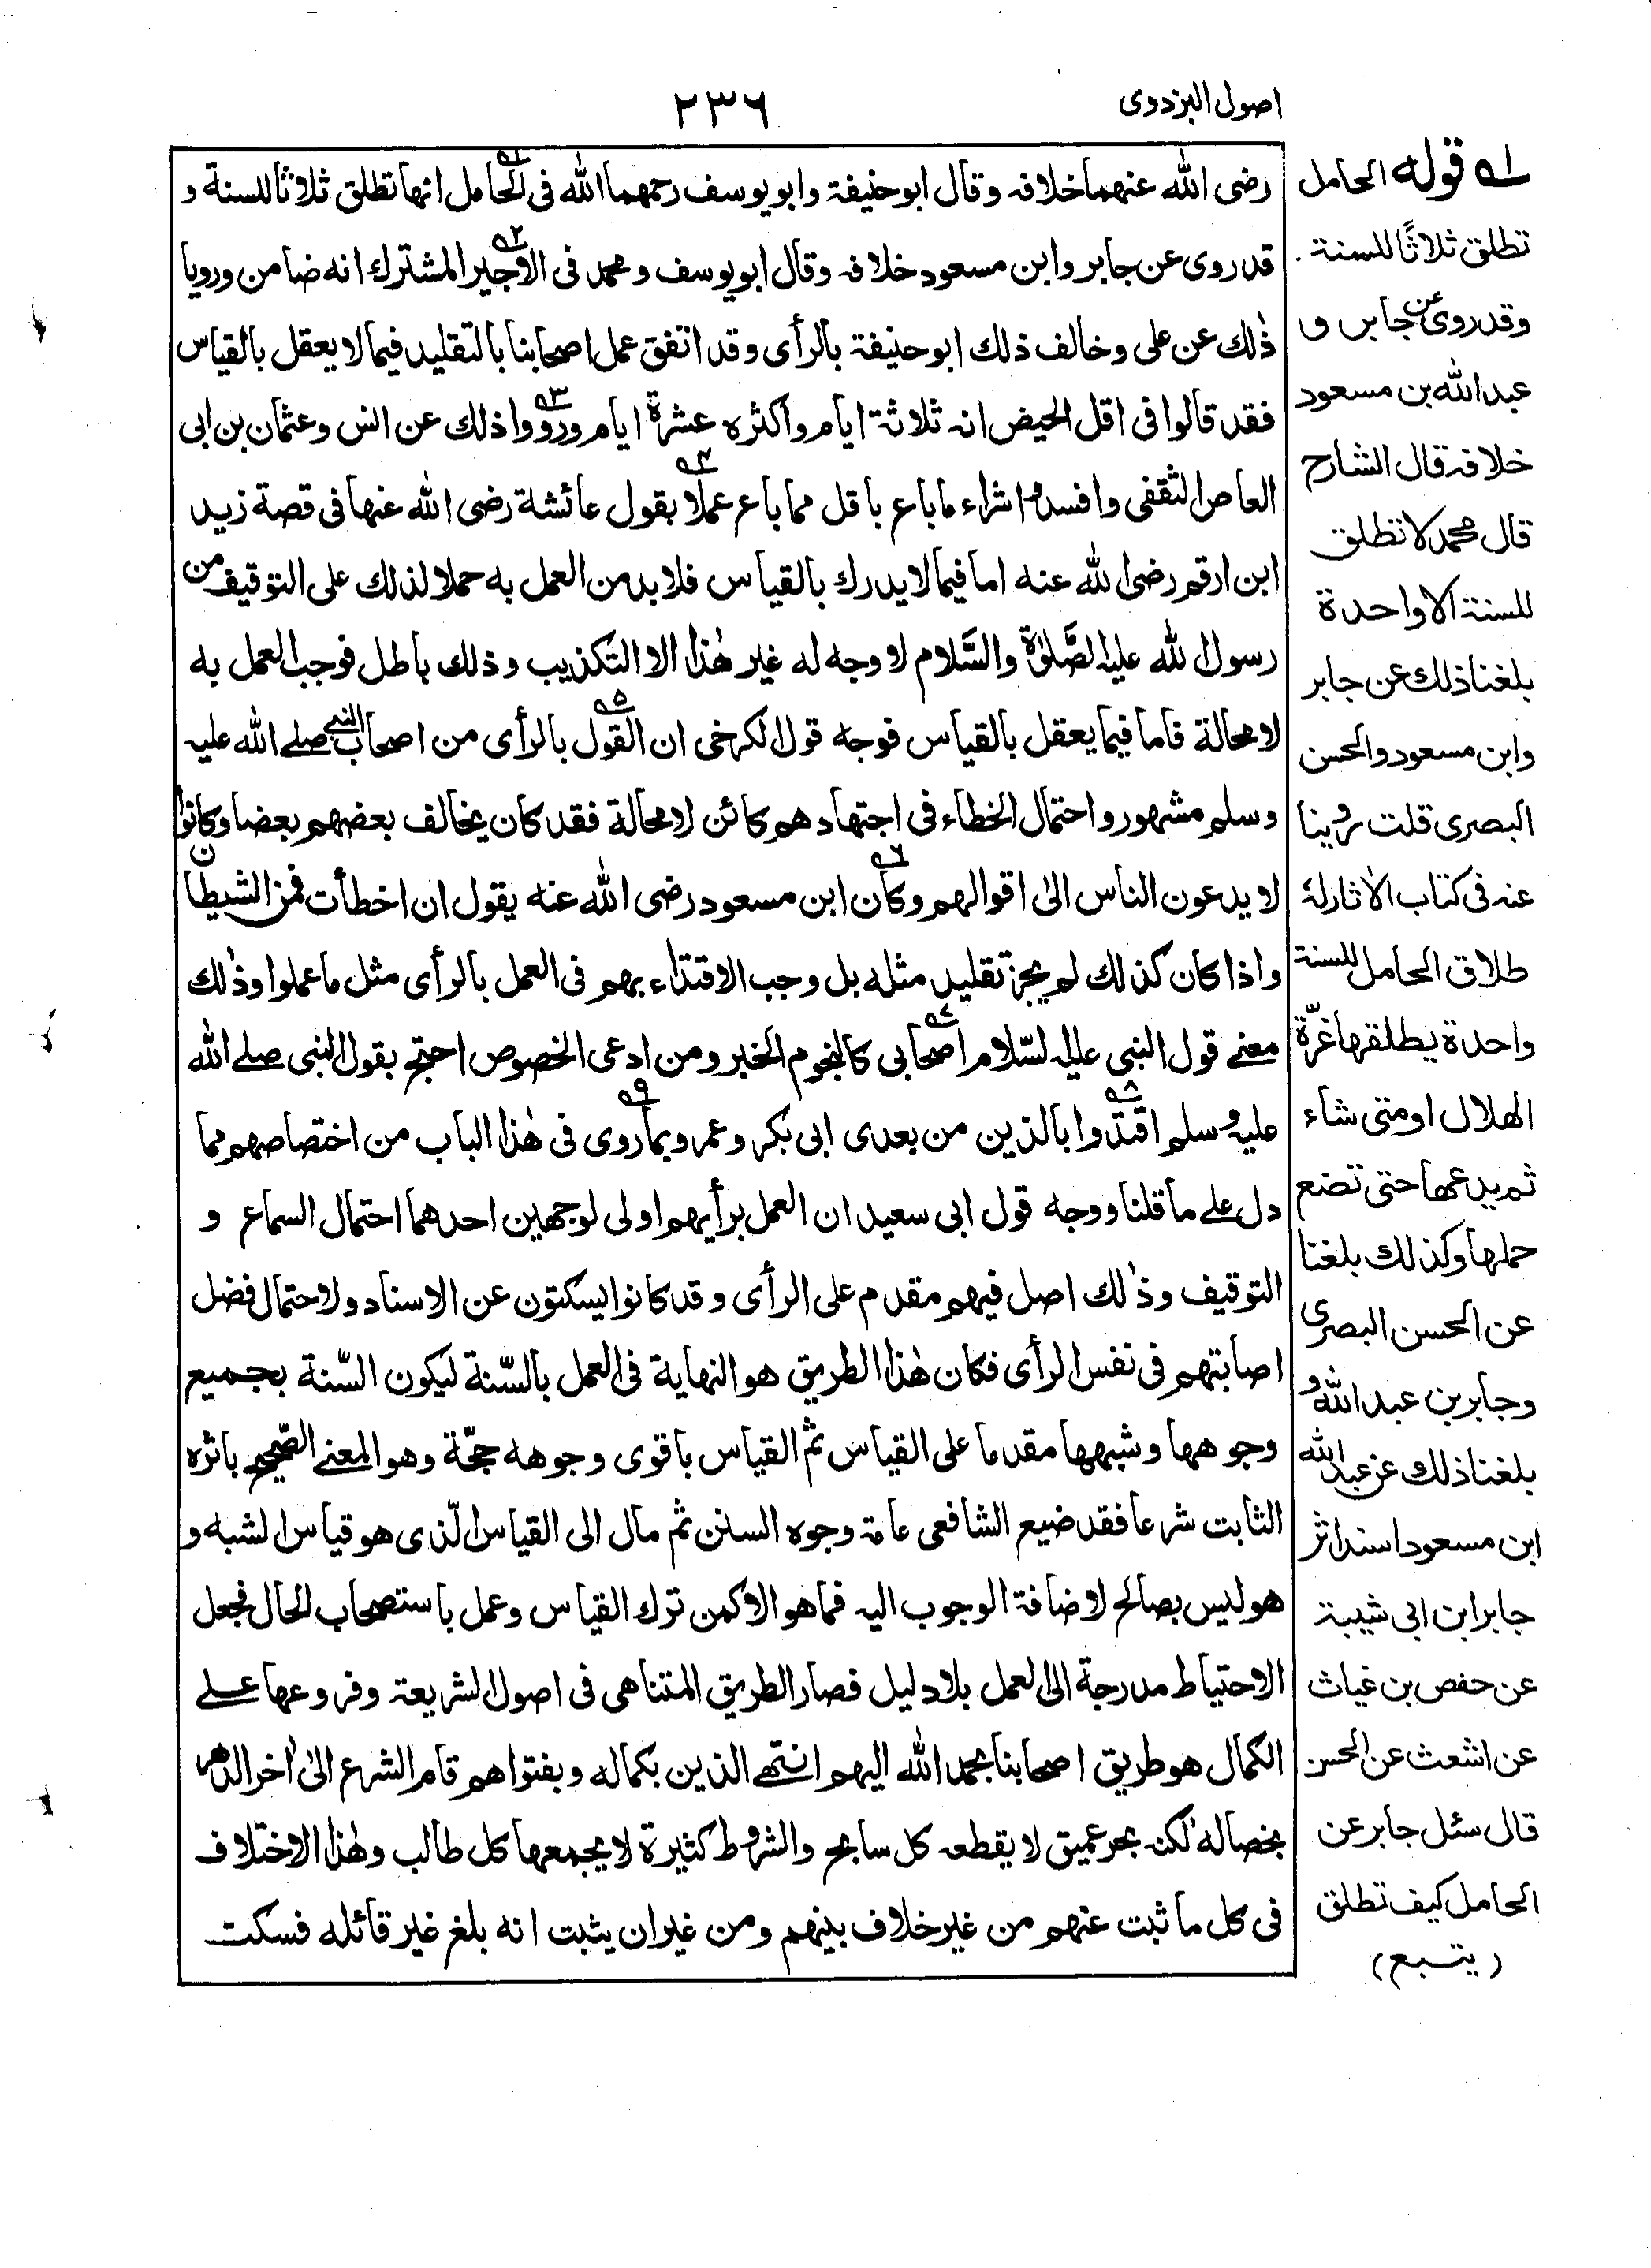 اصول البزدوى
٢٣٦
رضى الله عنهما خلافه وقال ابو حنيفة وابو يوسف رحمهما الله فى الحامل انها تطلق ثلاثا للسنة و
قد روى عن جابر وابن مسعود خلافه وقال ابو يوسف ومحمد فى الاجير المشترك انه ضامن ورويا
ذٰلك عن على وخالف ذلك ابو حنيفة بالرأى وقد اتفق عمل اصحابنا بالتقليد فيما لا يعقل بالقياس
فقد قالوا فى اقل الحيض انه ثلاثة ايام واكثره عشرة ايام ورووا ذلك عن انس وعثمان بن ابى
العاص الثقفى وافسدوا شراء ما باع باقل مما باع عملا بقول عائشة رضى الله عنها فى قصة زيد
ابن ارقم رضى الله عنه اما فيما لا يدرك بالقياس فلا بد من العمل به حملا لذلك على التوقيف من
رسول الله عليه الصَّلوٰة والسَّلام لا وجه له غير هٰذا الا التكذيب وذلك باطل فوجب العمل به
لا محالة فاما فيما يعقل بالقياس فوجه قول الكرخى ان القول بالرأى من اصحاب النبى صلے الله عليه
وسلم مشهور واحتمال الخطاء فى اجتهادهم كائن لا محالة فقد كان يخالف بعضهم بعضا وكانوا
لا يدعون الناس الىٰ اقوالهم وكان ابن مسعود رضى الله عنه يقول ان اخطأت فمن الشيطان
واذا كان كذلك لم يجز تقليد مثله بل وجب الاقتداء بهم فى العمل بالرأى مثل ما عملوا وذٰلك
معنے قول النبى عليه السّلام اصحابى كالنجوم الخبر ومن ادعى الخصوص احتج بقول النبى صلے الله
عليه وسلم اقتدوا بالذين من بعدى ابى بكر وعمر وبما روى فى هٰذا الباب من اختصاصهم مما
دل علے ما قلنا ووجه قول ابى سعيد ان العمل برأيهم اولى لوجهين احدهما احتمال السماع و
التوقيف وذٰلك اصل فيهم مقدم على الرأى وقد كانوا يسكتون عن الاسناد ولاحتمال فضل
اصابتهم فى نفس الرأى فكان هٰذا الطريق هو النهاية فى العمل بالسّنة ليكون السّنة بجميع
وجوهها وشبهها مقدما على القياس ثم القياس باقوى وجوهه حجّة وهو المعنے الصّحيح باثره
الثابت شرعا فقد ضيع الشافعى عامة وجوه السنن ثم مال الى القياس الّذى هو قياس الشبه و
هو ليس بصالح لاضافة الوجوب اليه فما هو الا كمن ترك القياس وعمل باستصحاب الحال فجعل
الاحتياط مدرجة الى العمل بلا دليل فصار الطريق المتناهى فى اصول الشريعة وفروعها علے
الكمال هو طريق اصحابنا بحمد الله اليهم انتهے الدين بكماله وبفتواهم قام الشرع الىٰ اٰخر الدهر
بخصاله لكنه بحر عميق لا يقطعه كل سابح والشروط كثيرة لا يجمعها كل طالب وهٰذا الاختلاف
فى كل ما ثبت عنهم من غير خلاف بينهم ومن غير ان يثبت انه بلغ غير قائله فسكت
١ قوله الحامل
تطلق ثلاثًا للسنة.
وقد روى عن جابر و
عبد الله بن مسعود
خلافه قال الشارح
قال محمد لا تطلق
للسنة الا واحدة
بلغنا ذلك عن جابر
وابن مسعود والحسن
البصرى قلت روينا
عنه فى كتاب الاٰثار له
طلاق الحامل للسنة
واحدة يطلقها غرّة
الهلال او متى شاء
ثم يدعها حتى تضع
حملها وكذلك بلغنا
عن الحسن البصرى
وجابر بن عبد الله و
بلغنا ذلك عن عبد الله
ابن مسعود اسند اثر
جابر ابن ابى شيبة
عن حفص بن غياث
عن اشعث عن الحسن
قال سئل جابر عن
الحامل كيف تطلق
(يتبع)